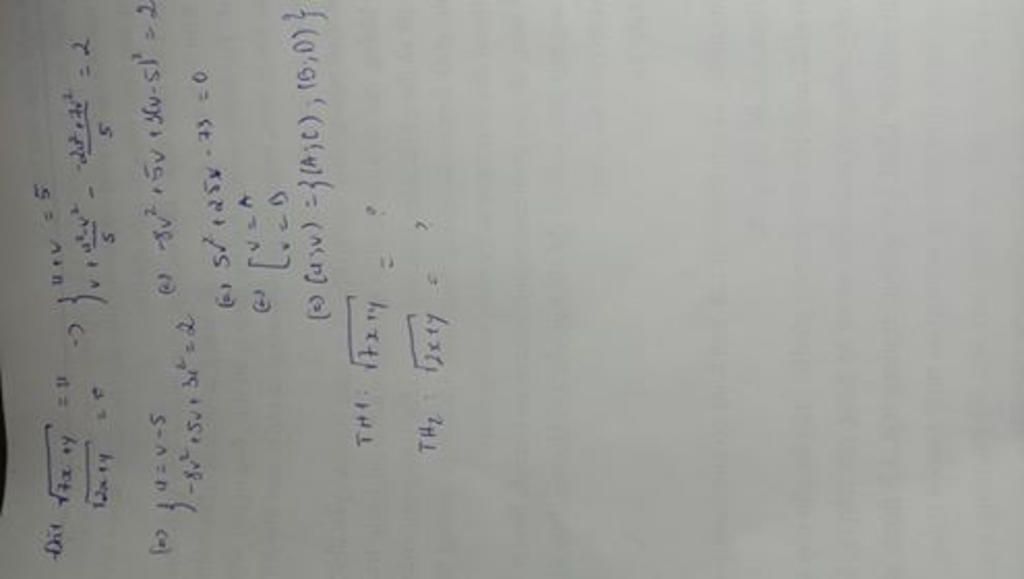 Đặt √(7x+y) = u
√(2x+y) = v
→ { u+v = 5
v + (u²-v²)/5 - (-2u²+7v²)/5 = 2
(=) { u = v-5
-8v²+5v+3u² = 2
(=) -8v²+5v+3(v-5)² = 2
(=) 5v²+25v-73 = 0
(=) [ v = A
v = B
(=) (u;v) = {(A;C);(B;D)}
TH1: √(7x+y) = ?
TH2: √(2x+y) = ?